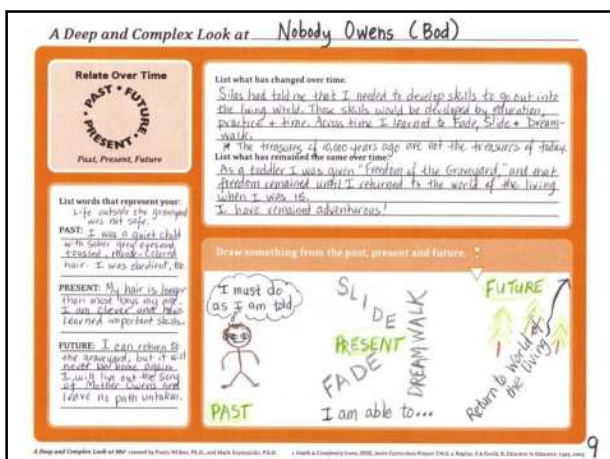 A Deep and Complex Look at Nobody Owens (Bod)
Relate Over Time
PAST • FUTURE • PRESENT •
Past, Present, Future
List what has changed over time.
Silas had told me that I needed to develop skills to go out into
the living world. These skills would be developed by education,
practice + time. Across time I learned to Fade, Slide + Dream-
walk.
* The treasures of 10,000 years ago are not the treasures of today.
List what has remained the same over time?
As a toddler I was given "Freedom of the Graveyard," and that
freedom remained until I returned to the world of the living
when I was 15.
I have remained adventurous!
List words that represent your:
Life outside the graveyard
was not safe.
PAST: I was a quiet child
with sober grey eyes and
tousled, mouse-colored
hair. I was obedient,
PRESENT: My hair is longer
than most boys my age.
I am clever and have
learned important skills.
FUTURE: I can return to
the graveyard, but it will
never be home again.
I will live out the song
of Mother Owens and
leave no path untaken.
Draw something from the past, present and future.
I must do
as I am told
PAST
SLIDE
PRESENT
FADE
DREAMWALK
I am able to...
FUTURE
Return to World of
the Living
A Deep and Complex Look at Me! created by Paula Wilkes, Ph.D., and Mark Szymanski, Ph.D.
9